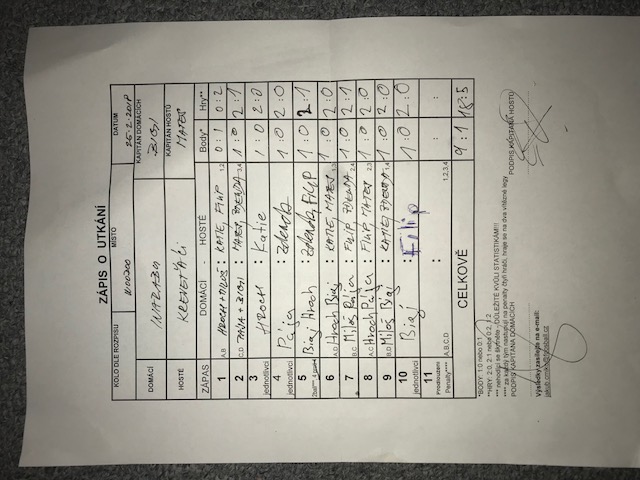 ZÁPIS O UTKÁNÍ
KOLO DLE ROZPISU MÍSTO DATUM
25-2-2018
DOMÁCÍ KAPITÁN DOMÁCÍCH
HOSTÉ KAPITÁN HOSTŮ
MATEJ
ZÁPAS DOMÁCÍ - HOSTÉ Body* Hry**
1 A,B HROCH+MILOŠ : KATIE, FILIP 1,2 0:1 0:2
2 C,D : MATEJ ZDENDA 3,4 1:0 2:1
3 jednotlivci HROCH : Katie 1:0 2:0
4 jednotlivci Pája : Zdenda 1:0 2:0
5 Bigi Hroch : Zdenda FILIP 1:0 2:1
6 A,D Hroch Bigi : KATIE, MATEJ 1:0 2:0
7 B,C Miloš Pája : FILIP, ZDENDA 2,4 1:0 2:1
8 A,C Hroch Pája : FILIP, MATEJ 1:0 2:0
9 B,D Miloš Bigi : KATIE, ZDENDA 1:0 2:0
10 jednotlivci Bigi : Filip 1:0 2:0
11 : : :
Prodloužení
Penalty**** A,B,C,D 1,2,3,4
CELKOVĚ 9:1 18:5
*BODY: 1:0 nebo 0:1
**HRY: 2:0, 2:1 nebo 0:2, 1:2
*** nehodící se škrtněte - DŮLEŽITÉ KVŮLI STATISTIKÁM!!!
**** za každý tým nastupují na penalty čtyři hráči, hraje se na dva vítězné legy
PODPIS KAPITÁNA DOMÁCÍCH PODPIS KAPITÁNA HOSTŮ
Výsledky zasílejte na e-mail: